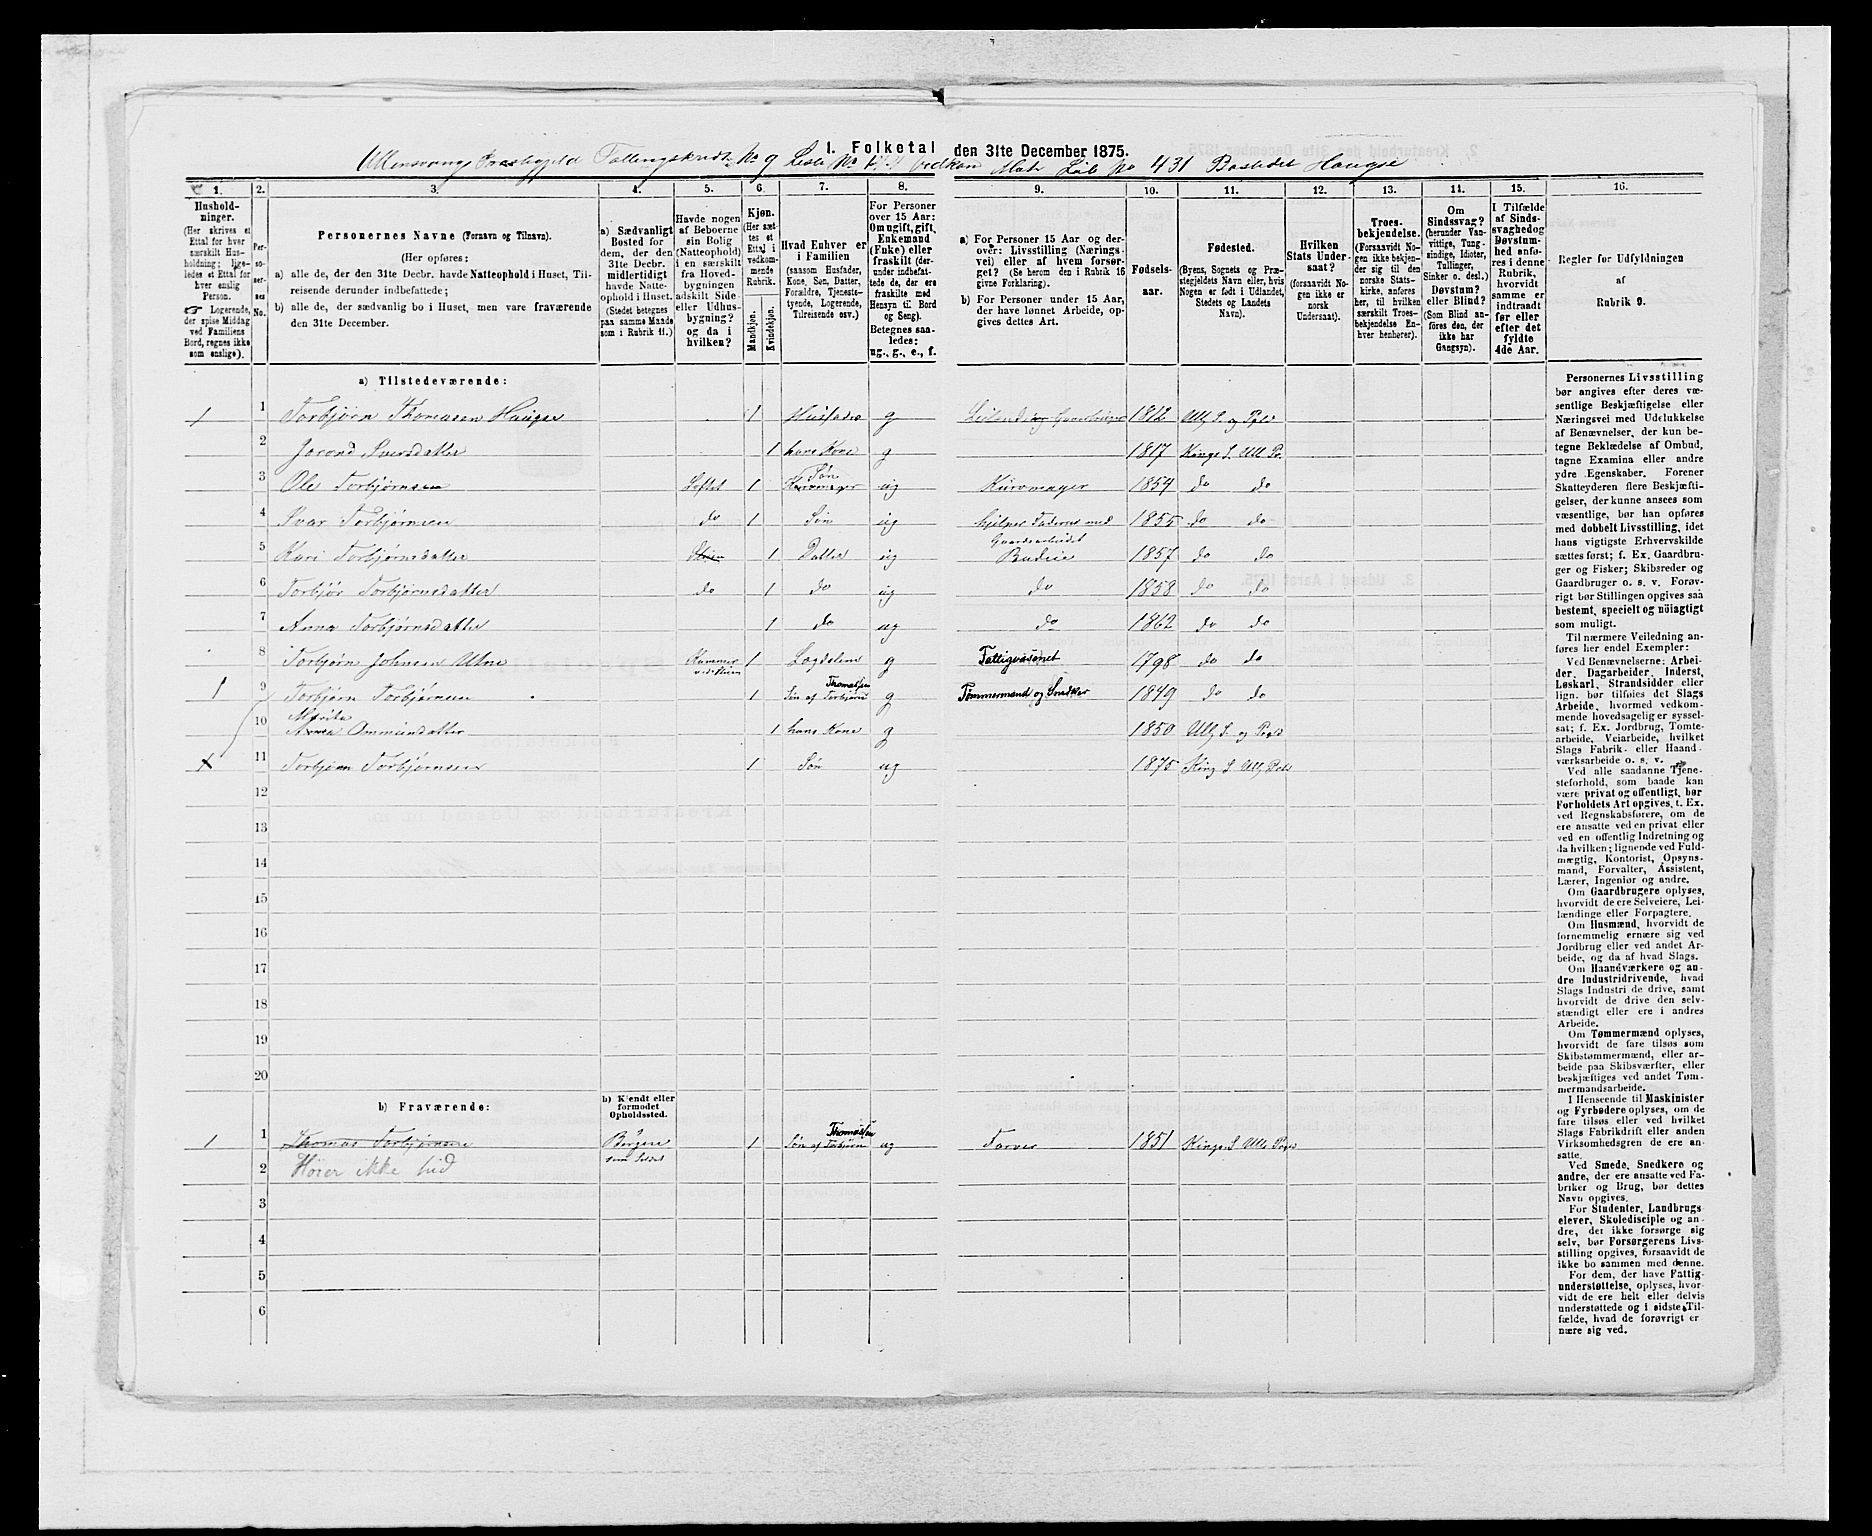 1. Folketal den 31te December 1875.
Ullensvang Præstegjeld Tællingskreds No 9 Liste No vedkom Matr Løb No 431 Bostedet Haugse
1. 2. 3. 4. 5. 6. 7. 8. 9. 10. 11. 12. 13. 14. 15. 16.
Hushold-
ninger.
(Her skrives et
Ettal for hver
særskilt Hus-
holdning; lige-
ledes et Ettal for
hver enslig
Person.
☞ Logerende,
der spise Middag
ved Familiens
Bord, regnes ikke
som enslige).
Per-
so-
ner-
nes
No.
Personernes Navne (Fornavn og Tilnavn).
(Her opføres:
a) alle de, der den 31te Decbr. havde Natteophold i Huset, Til-
reisende derunder indbefattede;
b) alle de, der sædvanlig bo i Huset, men vare fraværende
den 31te December.
a) Sædvanligt
Bosted for
dem, der den
31te Decbr.
midlertidigt
havde Natte-
ophold i Huset.
(Stedet betegnes
paa samme Maade
som i Rubrik 11.)
Havde nogen
af Beboerne
sin Bolig
(Natteophold)
i en særskilt
fra Hoved-
bygningen
adskilt Side-
eller Udhus-
bygning?
og da i
hvilken?
Kjøn.
(Her sæt-
tes et
Ettal i
vedkom-
mende
Rubrik.
Mandkjøn.
Kvindekjøn.
Hvad Enhver er
i Familien
(saasom Husfader,
Kone, Søn, Datter,
Forældre, Tjeneste-
tyende, Logerende,
Tilreisende osv.)
For Personer
over 15 Aar:
Om ugift, gift,
Enkemand
(Enke) eller
fraskilt (der-
under indbefat-
tede de, der ere
fraskilte med
Hensyn til Bord
og Seng).
Betegnes saa-
ledes:
ug., g., e., f.
a) For Personer 15 Aar og der-
over: Livsstilling (Nærings-
vei) eller af hvem forsør-
get? (Se herom den i Rubrik 16
givne Forklaring).
b) For Personer under 15 Aar,
der have lønnet Arbeide, op-
gives dettes Art.
Fødsels-
aar.
Fødested.
(Byens, Sognets og Præ-
stegjeldets Navn eller, hvis
Nogen er født i Udlandet,
Stedets og Landets
Navn).
Hvilken
Stats Under-
saat?
(forsaavidt No-
gen ikke er
norsk
Undersaat).
Troes-
bekjendelse.
(Forsaavidt No-
gen ikke bekjen-
der sig til den
norske Stats-
kirke, anføres
her, til hvilken
særskilt Troes-
bekjendelse En-
hver henhører).
Om
Sindssvag?
(herunder Van-
vittige, Tung-
sindige, Idioter,
Tullinger,
Sinker o. desl.)
Døvstum?
eller Blind?
(Som Blind an-
føres den, der
ikke har
Gangsyn).
I Tilfælde
af Sinds-
svaghed og
Døvstum-
hed anfø-
res i denne
Rubrik,
hvorvidt
samme er
indtraadt
før eller
efter det
fyldte
4de Aar.
Regler for Udfyldningen
af
Rubrik 9.
a) Tilstedeværende:
1 1 Torbjørn Thomasen Haugse 1 Husfader g Leilending Gaardbruger 1812 Ull S. og Pgld
2 Jorond Sversdatter 1 hans Kone g 1817 Kinge S. Ull Pr.
3 Ole Torbjørnsen Loftet 1 Søn Kurvmager ug Kurvmager 1854 do do
4 Ivar Torbjørnsen do 1 Søn ug hjelper Faderen med Gaardsarbeidet 1855 do do
5 Kari Torbjørnsdatter 1 Datter ug Budeie 1857 do do
6 Torbjør Torbjørnsdatter do 1 do ug do 1858 do do
7 Anna Torbjørnsdatter 1 do ug do 1862 do do
8 Torbjørn Johnsen Utne Kammer 1 Lægdslem g Fattigvæsenet 1798 do do
1 9 Torbjørn Torbjørnsen 1 Søn af Torbjørn Thomassen g Tømmermand og Snedker 1849 do do
10 Marita Ammundsdatter 1 hans Kone g 1850 Ull S. og Pgld
X 11 Torbjørn Torbjørnsen 1 Søn ug 1875 King S Ull Pgld
12
13
14
15
16
17
18
19
20
b) Fraværende:
b) Kjendt eller
formodet
Opholdssted.
1 1 Thomas Torbjørnsen Bergen som Soldat 1 Søn af Torbjørn Thomassen ug Farver 1851 Kinge S Ull Pgld
2 Hører ikke hid
3
4
5
6
Personernes Livsstilling
bør angives efter deres væ-
sentlige Beskjæftigelse eller
Næringsvei med Udelukkelse
af Benævnelser, der kun be-
tegne Beklædelse af Ombud,
tagne Examina eller andre
ydre Egenskaber. Forener
Skatteyderen flere Beskjæfti-
gelser, der kunne ansees som
væsentlige, bør han opføres
med dobbelt Livsstilling, idet
hans vigtigste Erhvervskilde
sættes først; f. Ex. Gaardbru-
ger og Fisker; Skibsreder og
Gaardbruger o. s. v. Forøv-
rigt bør Stillingen opgives saa
bestemt, specielt og nöiagtigt
som muligt.
Til nærmere Veiledning an-
føres her endel Exempler:
Ved Benævnelserne: Arbei-
der, Dagarbeider, Inderst,
Løskarl, Strandsidder eller
lign. bør tilføies det Slags
Arbeide, hvormed vedkom-
mende hovedsagelig er syssel-
sat; f. Ex. Jordbrug, Tomte-
arbeide, Veiarbeide, hvilket
Slags Fabrik- eller Haand-
værksarbeide o. s. v.
Ved alle saadanne Tjene-
steforhold, som baade kan
være privat og offentligt, bør
Forholdets Art opgives, t. Ex.
ved Regnskabsførere, om de
ere ansatte ved en privat eller
ved en offentlig Indretning og
da hvilken; lignende ved Fuld-
mægtig, Kontorist, Opsyns-
mand, Forvalter, Assistent,
Lærer, Ingeniør og andre.
Om Gaardbrugere oplyses,
hvorvidt de ere Selveiere, Lei-
lændinge eller Forpagtere.
Om Husmænd, hvorvidt de
fornemmelig ernære sig ved
Jordbrug eller ved andet Ar-
beide, og da af hvad Slags.
Om Haandværkere og an-
dre Industridrivende, hvad
Slags Industri de drive, samt
hvorvidt de drive den selv-
stændigt eller ere i andres
Arbeide.
Om Tømmermænd oplyses,
hvorvidt de fare tilsøs som
Skibstømmermænd, eller ar-
beide paa Skibsværfter, eller
beskjæftiges ved andet Tøm-
mermandsarbeide.
I Henseende til Maskinister
og Fyrbødere oplyses, om de
fare tilsøs eller ved hvilket
Slags Fabrikdrift eller anden
Virksomhedsgren de ere an-
satte.
Ved Smede, Snedkere og
andre, der ere ansatte ved Fa-
briker og Brug, bør dettes
Navn opgives.
For Studenter, Landbrugs-
elever, Skoledisciple og an-
dre, der ikke forsørge sig
selv, bør Forsørgerens Livs-
stilling opgives, forsaavidt de
ikke bo sammen med denne.
For dem, der have Fattig-
understøttelse, oplyses, hvor-
vidt de ere helt eller delvis
understøttede og i sidste Til-
fælde, hvad de forøvrigt er-
nære sig ved.